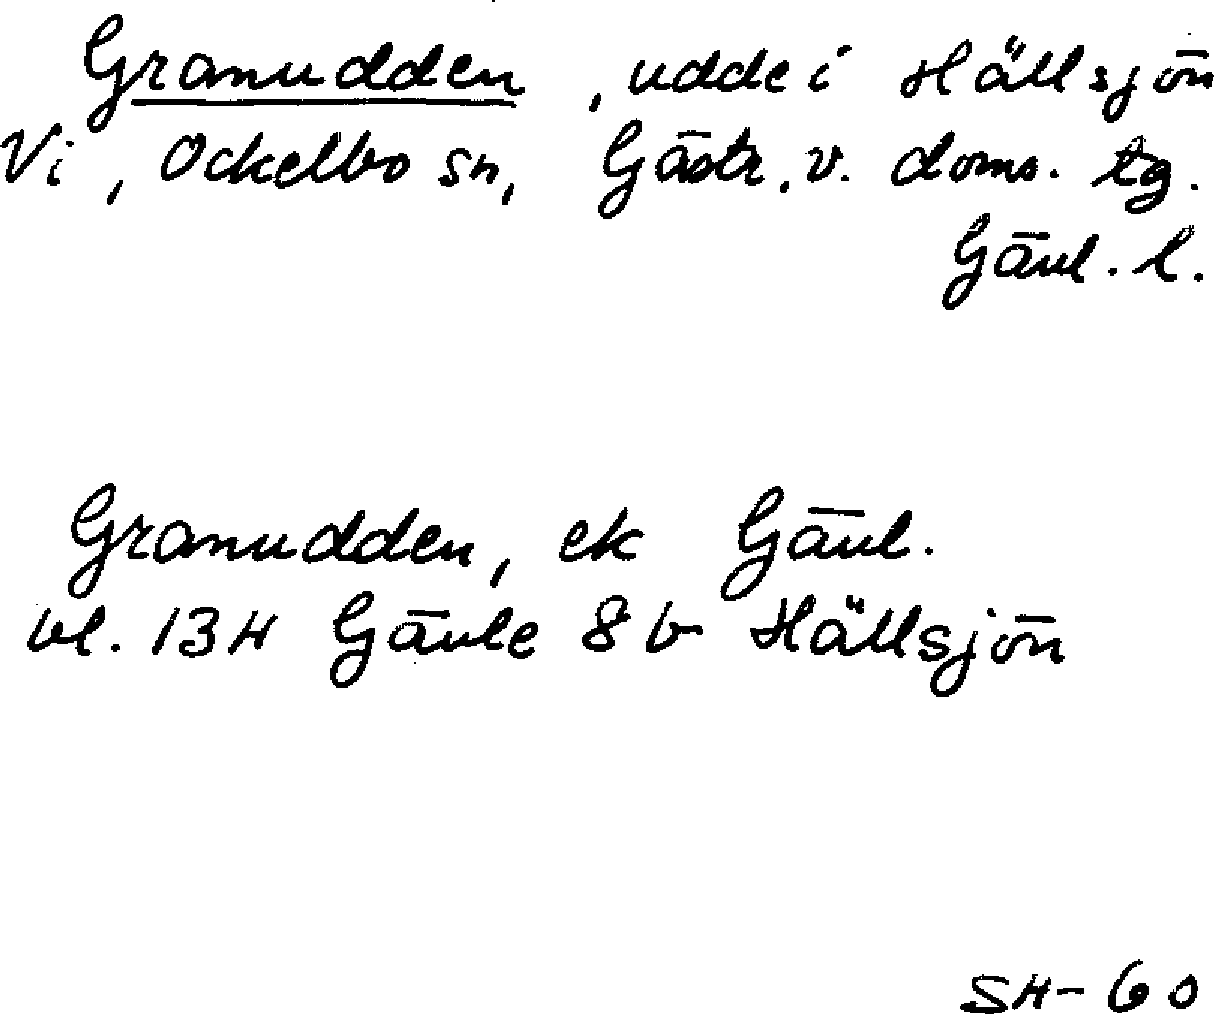 Granudden, udde i Hällsjön
Vi, Ockelbo sn, Gästr. v. doms. tg.
Gävl. l.
Granudden, ek Gävl.
bl. 13H Gävle 8 b Hällsjön
SH-60